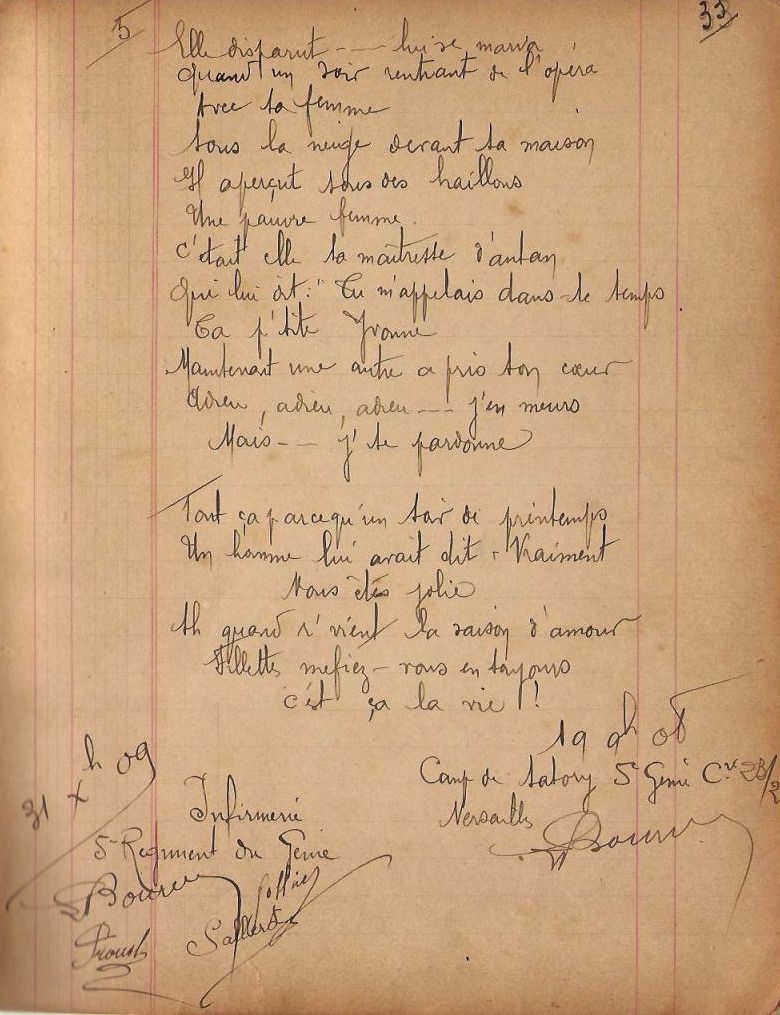 5
33
Elle disparut -- lui se maria
Quand un soir rentrant de l'opéra
Avec sa femme
Sous la neige devant sa maison
Il aperçut sous des haillons
Une pauvre femme.
C'était elle sa maîtresse d'antan
Qui lui dit : "Tu m'appelais dans le temps
Ta p'tite Yvonne
Maintenant une autre a pris ton cœur
Adieu, adieu, adieu --- j'en meurs
Mais -- j'te pardonne
Tout ça parcequ'un soir de printemps
Un homme lui avait dit " Vraiment
Vous êtes jolie
Ah quand r'vient la saison d'amour
Fillettes mefiez-vous en toujours
c'est ça la vie !
19 9h 08
Camp de Satory 5e Génie Cie 23/2
Versailles
31 Xh 09
Infirmerie
5e Regiment du Genie
Proust